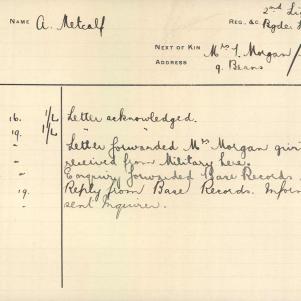 NAME A. Metcalf
REG. &C. 2nd
NEXT OF KIN Mrs J. Morgan
ADDRESS 9. Beans
16. 1/2 Letter acknowledged.
19. 1/2 " "
" Letter forwarded Mrs Morgan
" received from Military here.
" Enquiry forwarded Base Records
19. Reply from Base Records.
sent Inquirer.